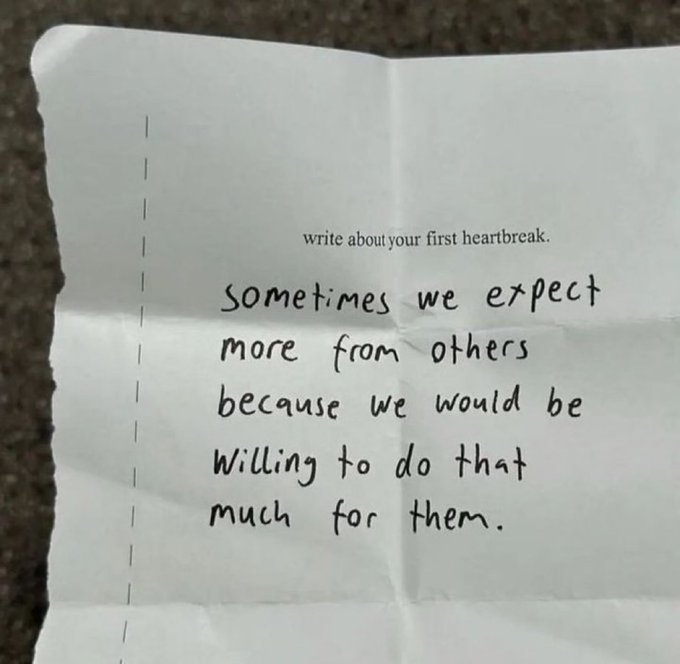 write about your first heartbreak.
sometimes we expect
more from others
because we would be
willing to do that
much for them.